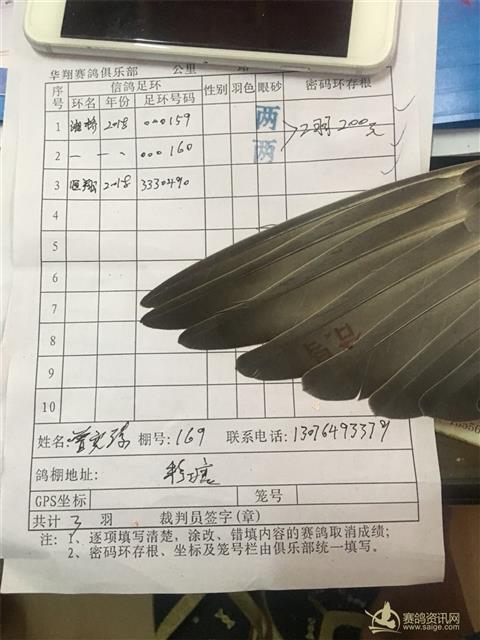 华翔赛鸽俱乐部 公里
序号 信鸽足环 性别 羽色 眼砂 密码环存根
环名 年份 足环号码
1 湘桥 2018 000159 两
2羽200元
2 一 一、 000160 两
3 2018 3330490
4
5
6
7
8
9
10
姓名: 棚号: 169 联系电话: 13076493379
鸽棚地址:
GPS坐标 笼号
共计 3 羽 裁判员签字(章)
注: 1、逐项填写清楚, 涂改、错填内容的赛鸽取消成绩;
2、密码环存根、坐标及笼号栏由俱乐部统一填写。
赛鸽资讯网
www.saige.com